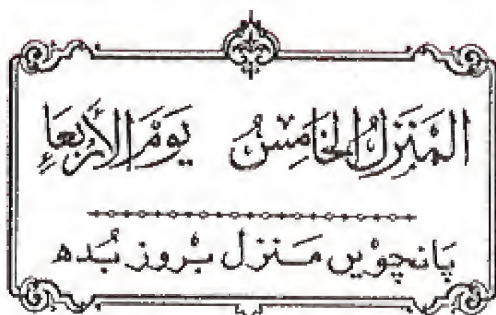 المَنزِلُ الخَامِسُ يَوْمَ الأَرْبَعَاءِ
پَانچوْیں مَنزل بْروز بُدھ